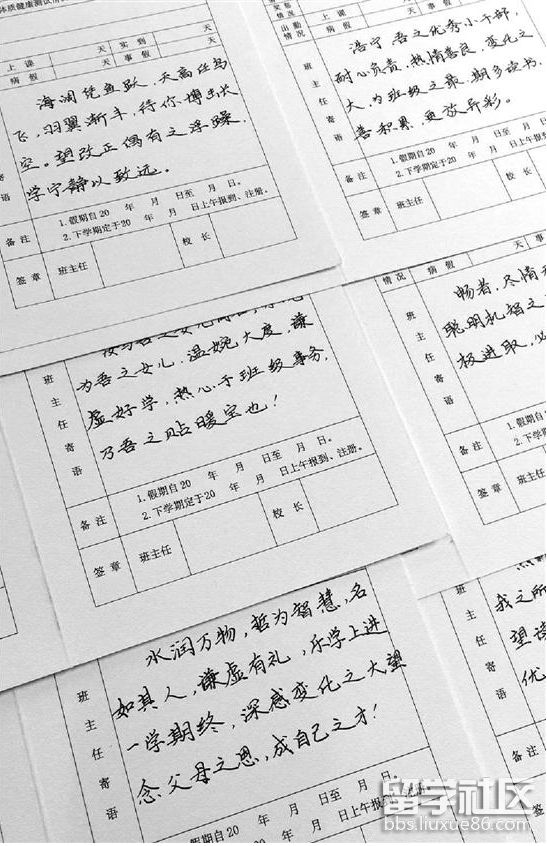 体质健康测试情况
上课 天 实到 天
病假 天 事假 天
海阔凭鱼跃，天高任鸟
飞，羽翼渐丰，待你搏击长
空。望改正偶有之浮躁，
学宁静以致远。
寄
语
备注
1.假期自20 年 月 日至 月 日。
2.下学期定于20 年 月 日上午报到、注册。
签章 班主任 校长
出勤
情况
上课 天 实到
病假 天 事假
浩宁 吾之优秀小干部，
耐心负责，热情善良，变化之
大，为班级之最，期多读书，
善积累，更放异彩。
主
任
寄
语
备注
1.假期自20 年 月 日至 月 日。
2.下学期定于20 年 月 日上午报到、
签章 班主任 校长
为吾之女儿，温婉大度，谦
虚好学，热心于班级事务，
乃吾之贴暖宝也！
班
主
任
寄
语
备注
1.假期自20 年 月 日至 月 日。
2.下学期定于20 年 月 日上午报到、注册。
签章 班主任 校长
情况 病假 天 事
畅若，尽情
聪明机智之
极进取，必
班
主
任
寄
语
备注
1.假期自20 年
2.下学期定于20
签章 班主任
水润万物，哲为智慧，名
如其人，谦虚有礼，乐学上进
一学期终，深感变化之大望
念父母之恩，成自己之才！
班
主
任
寄
语
备注
1.假期自20 年 月 日至 月 日。
2.下学期定于20 年 月
我之所
望
优
班
主
任
寄
语
备注
留学社区
bbs.liuxue86.com